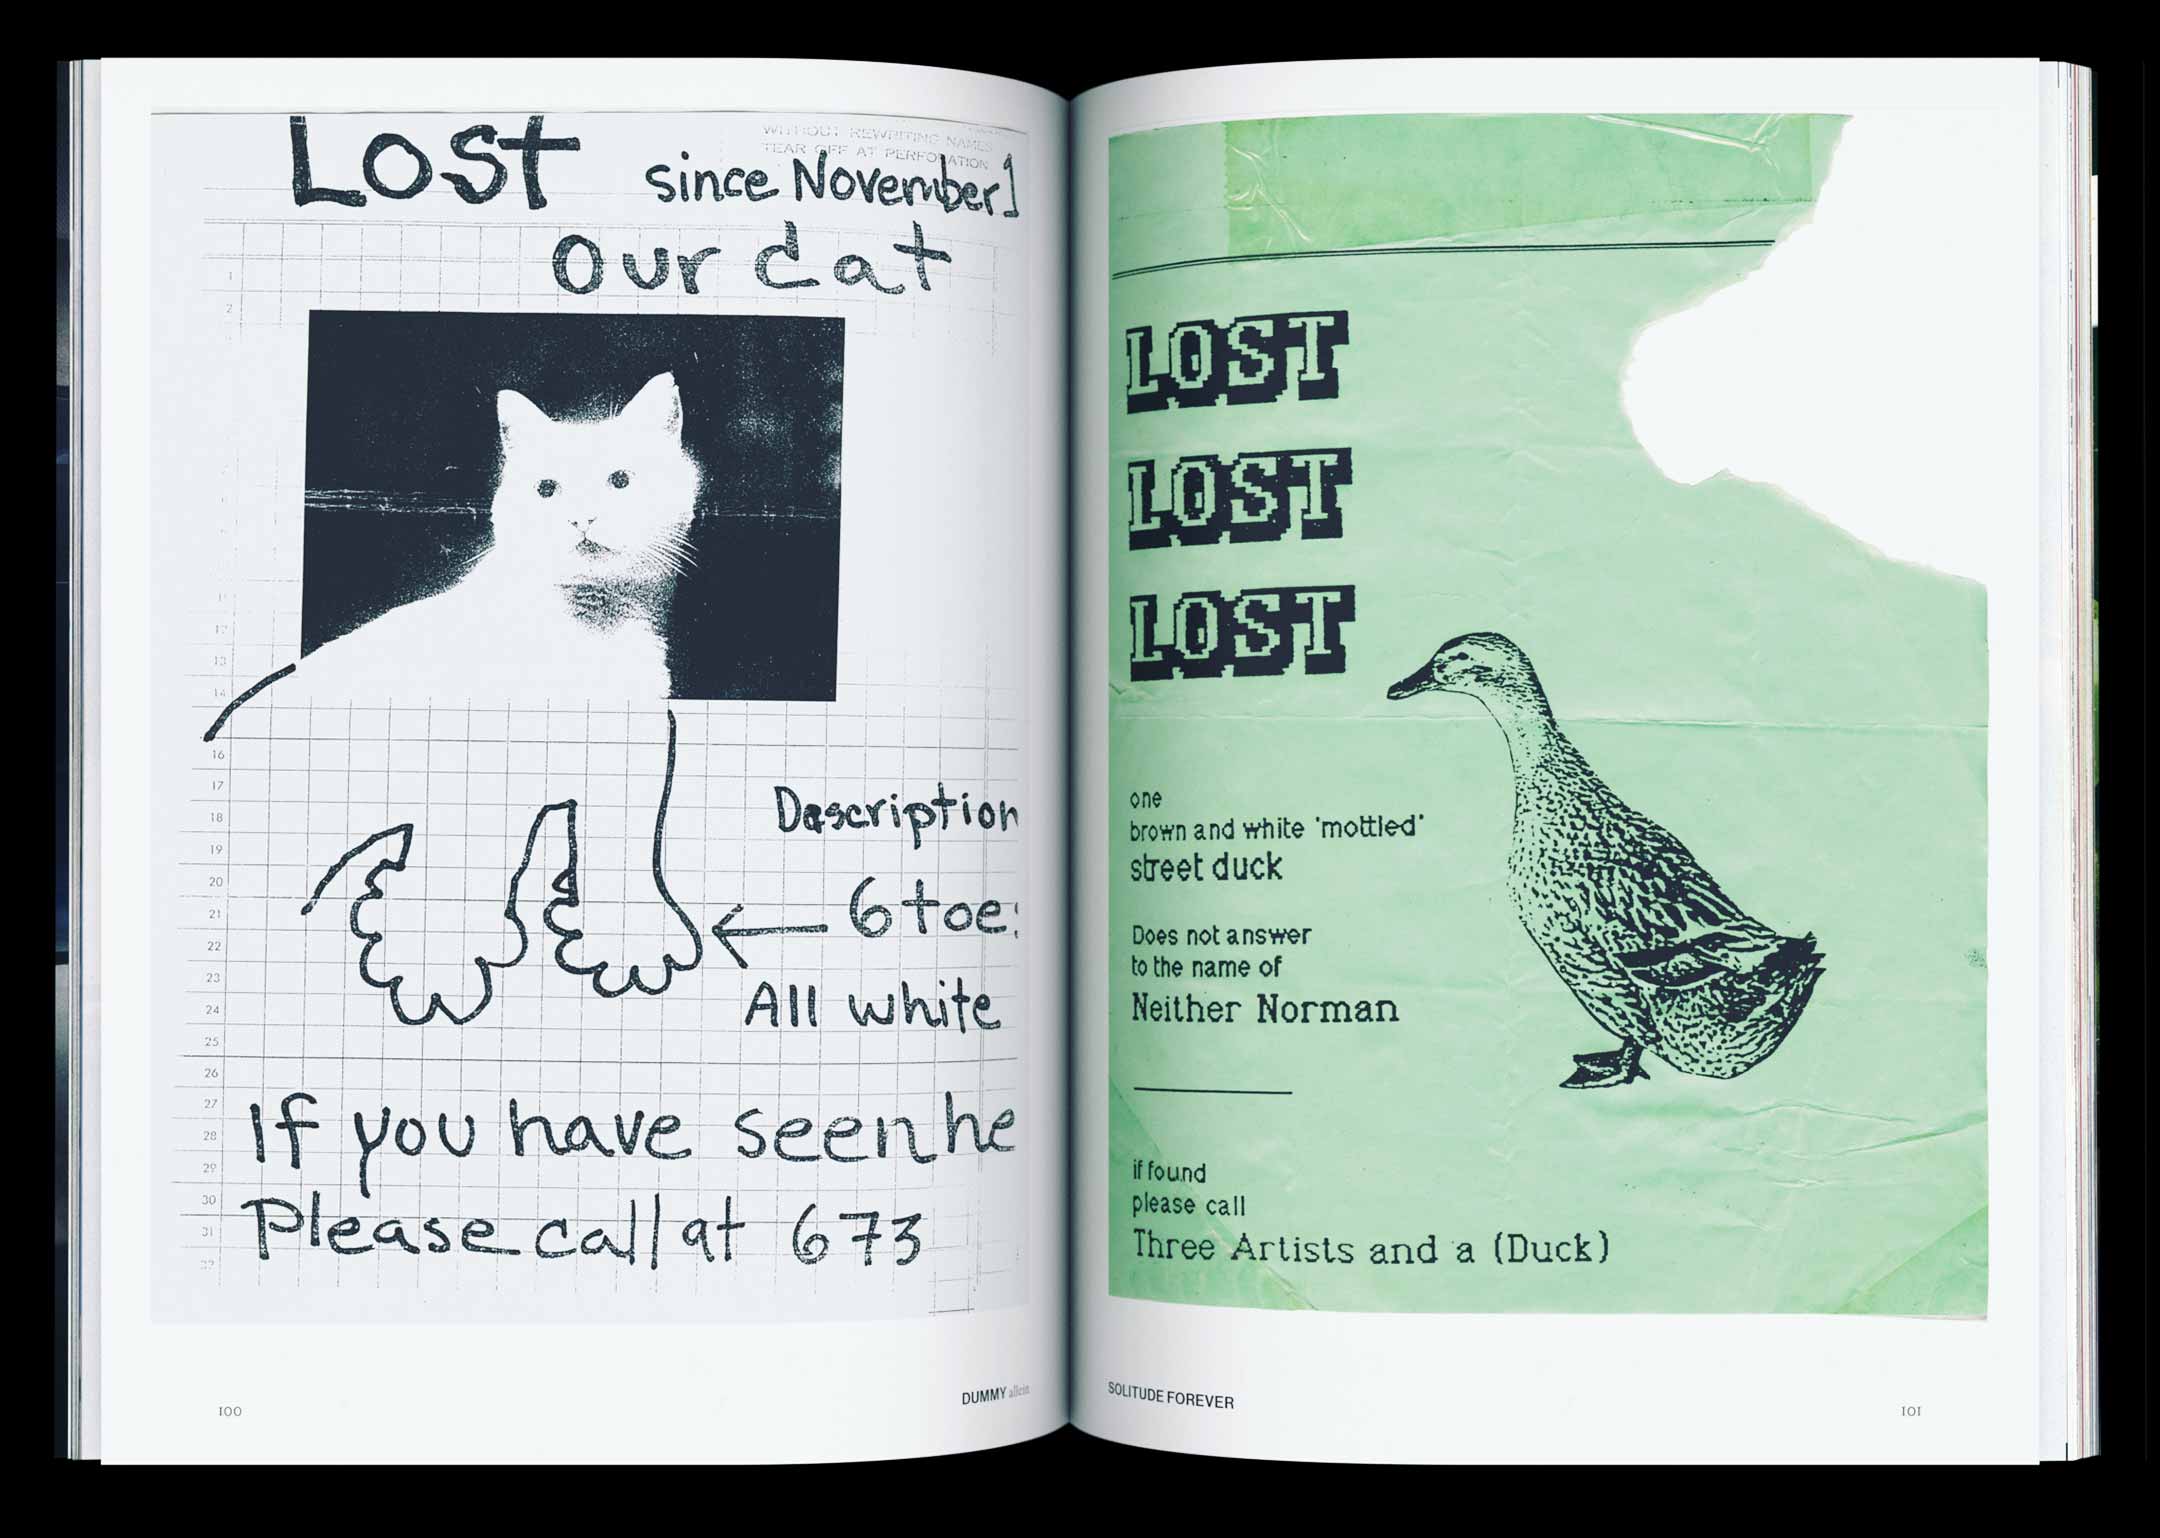 WITHOUT REWRITING NAMES
TEAR OFF AT PERFORATION
Lost since November 1
our cat
1
2
13
14
16
17
18
19
20
21
22
23
24
25
26
27
28
29
30
31
32
Description
6 toes
All white
If you have seen he
Please call at 673
100
DUMMY allein
LOST
LOST
LOST
one
brown and white 'mottled'
street duck
Does not answer
to the name of
Neither Norman
if found
please call
Three Artists and a (Duck)
SOLITUDE FOREVER
101